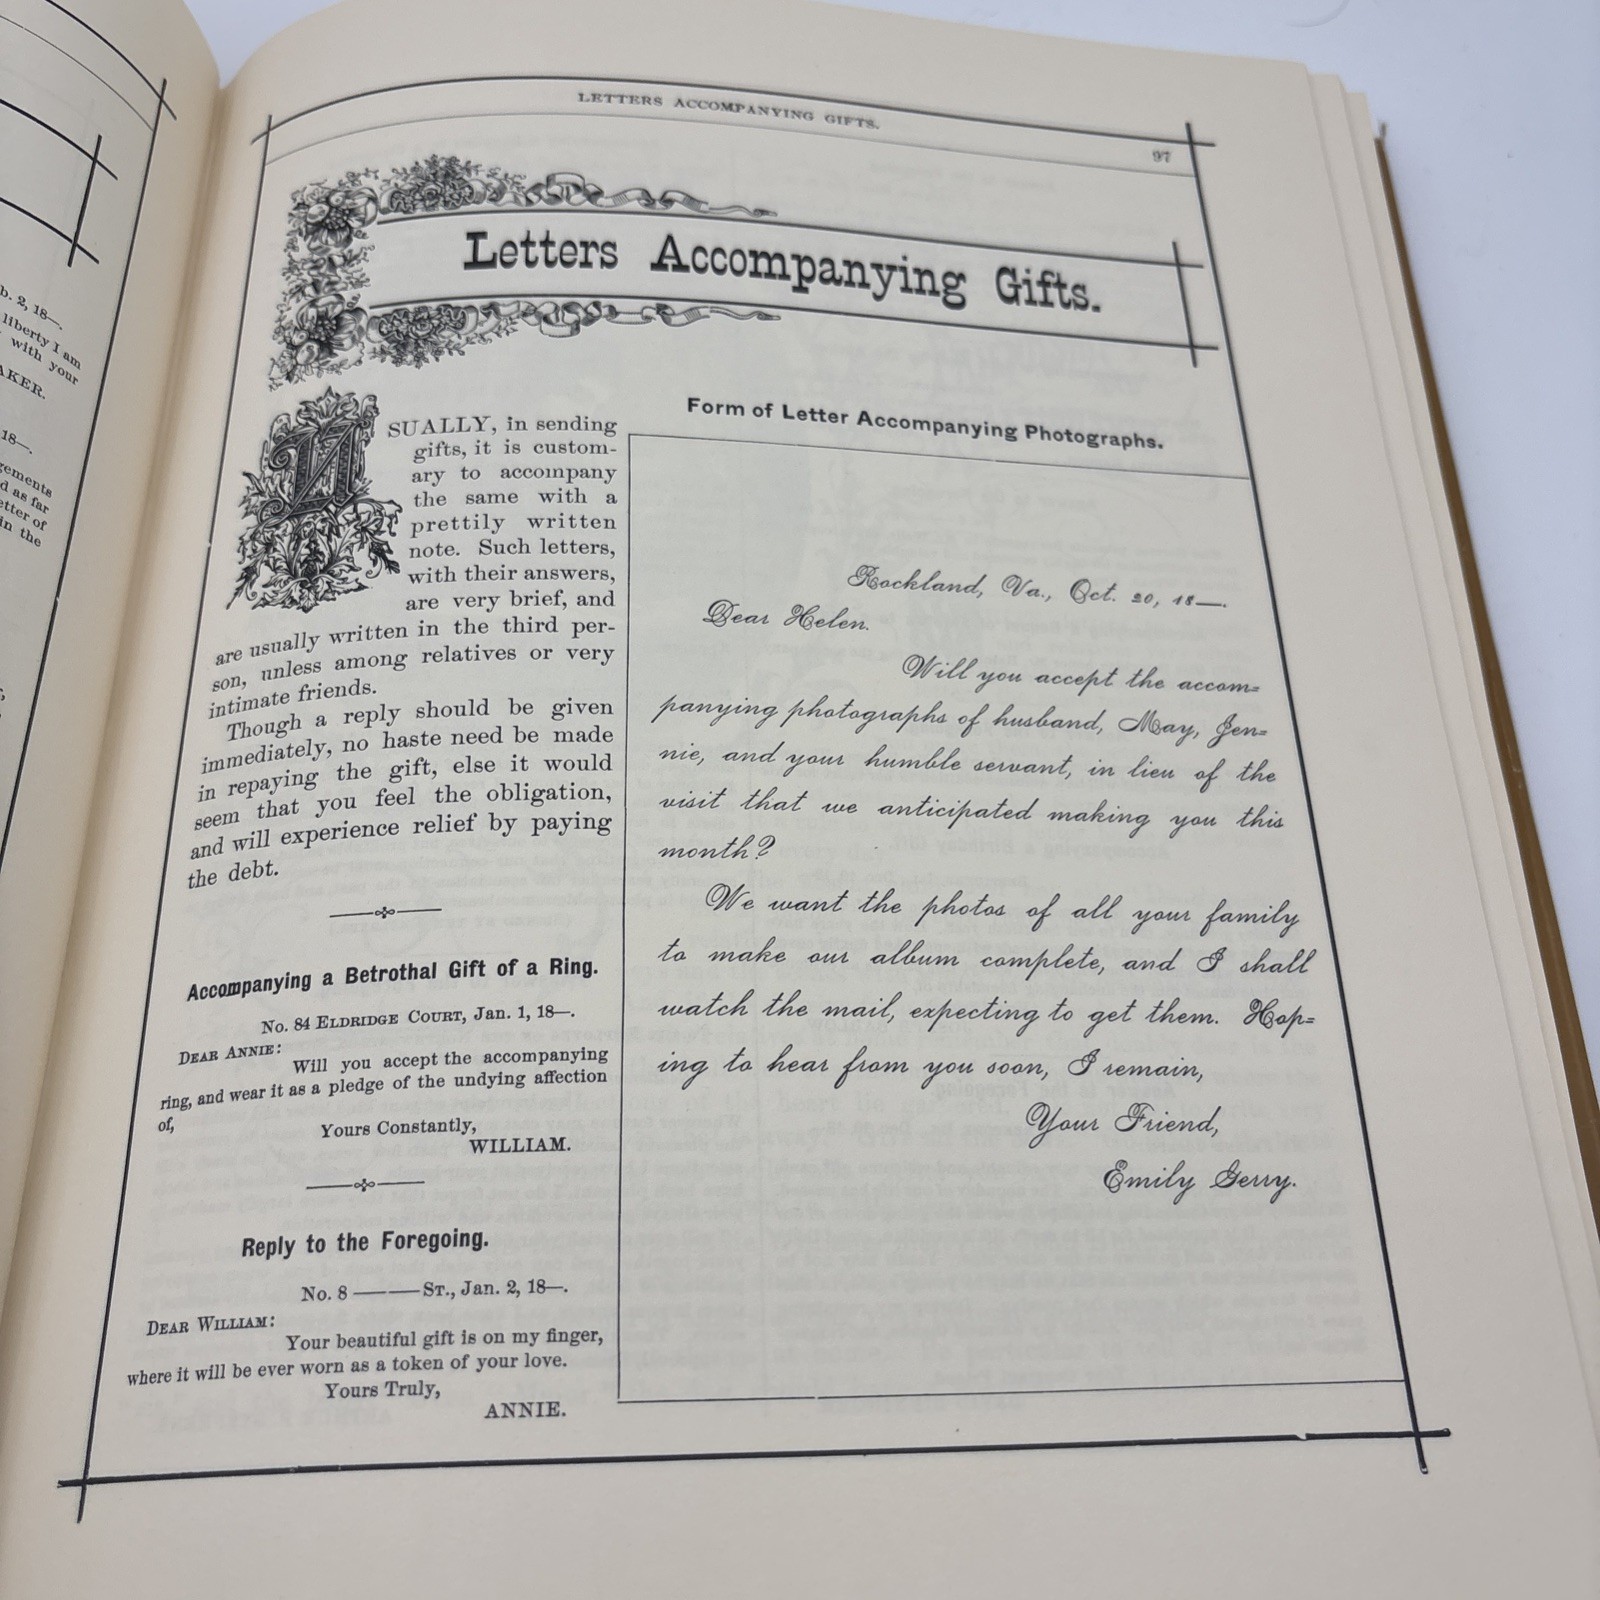 b. 2, 18—.
liberty I am
with your
AKER.
18—.
gements
d as far
etter of
in the
LETTERS ACCOMPANYING GIFTS.
97
Letters Accompanying Gifts.
USUALLY, in sending
gifts, it is custom-
ary to accompany
the same with a
prettily written
note. Such letters,
with their answers,
are very brief, and
are usually written in the third per-
son, unless among relatives or very
intimate friends.
Though a reply should be given
immediately, no haste need be made
in repaying the gift, else it would
seem that you feel the obligation,
and will experience relief by paying
the debt.
Accompanying a Betrothal Gift of a Ring.
No. 84 ELDRIDGE COURT, Jan. 1, 18—.
DEAR ANNIE:
Will you accept the accompanying
ring, and wear it as a pledge of the undying affection
of,
Yours Constantly,
WILLIAM.
Reply to the Foregoing.
No. 8 —— ST., Jan. 2, 18—.
DEAR WILLIAM:
Your beautiful gift is on my finger,
where it will be ever worn as a token of your love.
Yours Truly,
ANNIE.
Form of Letter Accompanying Photographs.
Rockland, Va., Oct. 20, 18—.
Dear Helen.
Will you accept the accom=
panying photographs of husband, May, Jen=
nie, and your humble servant, in lieu of the
visit that we anticipated making you this
month?
We want the photos of all your family
to make our album complete, and I shall
watch the mail, expecting to get them. Hop=
ing to hear from you soon, I remain,
Your Friend,
Emily Gerry.